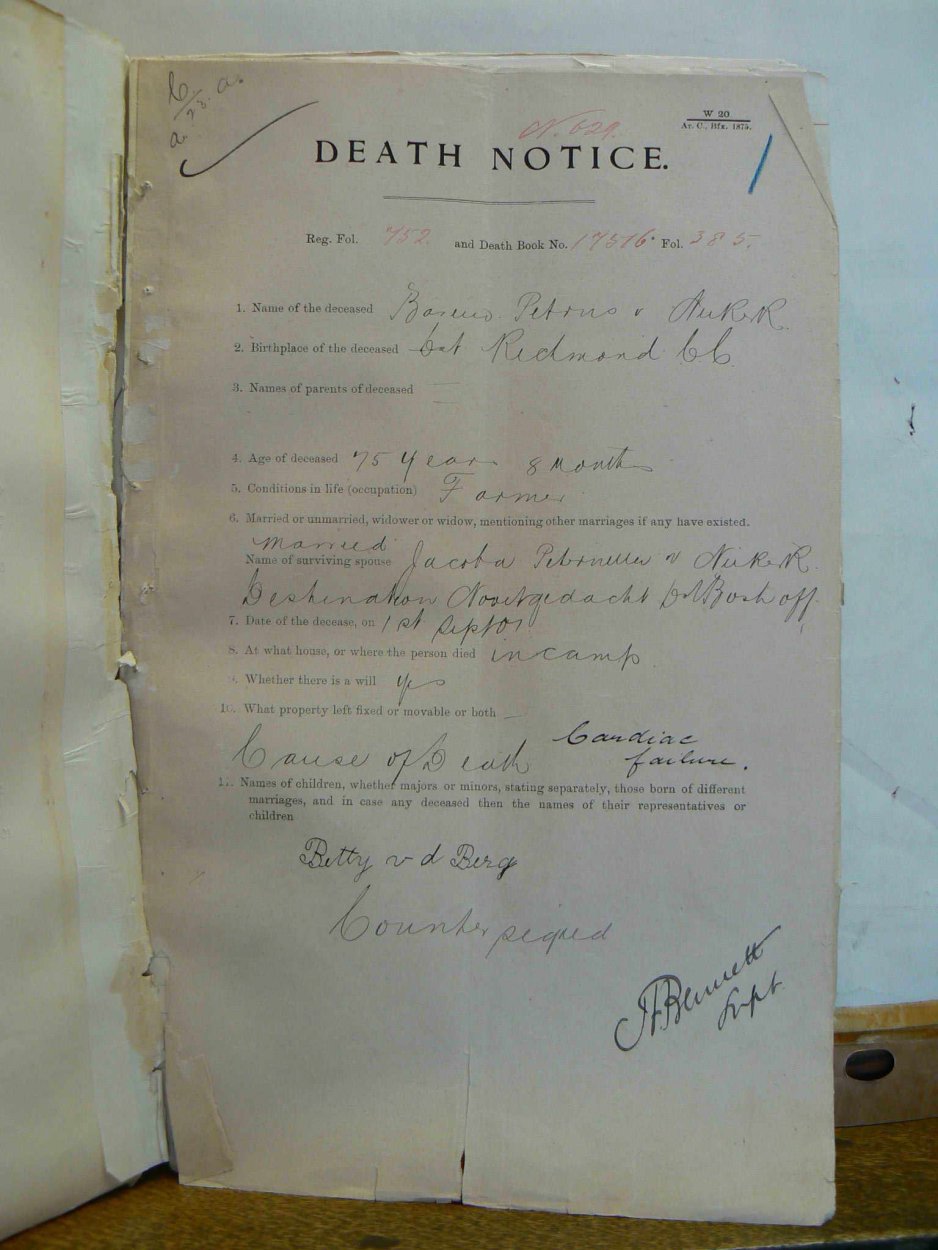 a. 23. a.
W 20
Ar. C., Bfn. 1875.
N. 629.
DEATH NOTICE.
Reg. Fol. 752 and Death Book No. 17516 Fol. 385.
1. Name of the deceased Petrus v Niekerk
2. Birthplace of the deceased Dst Redmond CC
3. Names of parents of deceased —
4. Age of deceased 75 years 8 months
5. Conditions in life (occupation) Farmer
6. Married or unmarried, widower or widow, mentioning other marriages if any have existed.
married
Name of surviving spouse Jacoba Petronella v Niekerk
Destination Nooitgedacht Dst Boshoff
7. Date of the decease, on 1st Sept 01
8. At what house, or where the person died in camp
9. Whether there is a will yes
10. What property left fixed or movable or both —
Cause of Death Cardiac
failure.
11. Names of children, whether majors or minors, stating separately, those born of different
marriages, and in case any deceased then the names of their representatives or
children
Betty v d Berg
Counter signed
Bennett
Supt